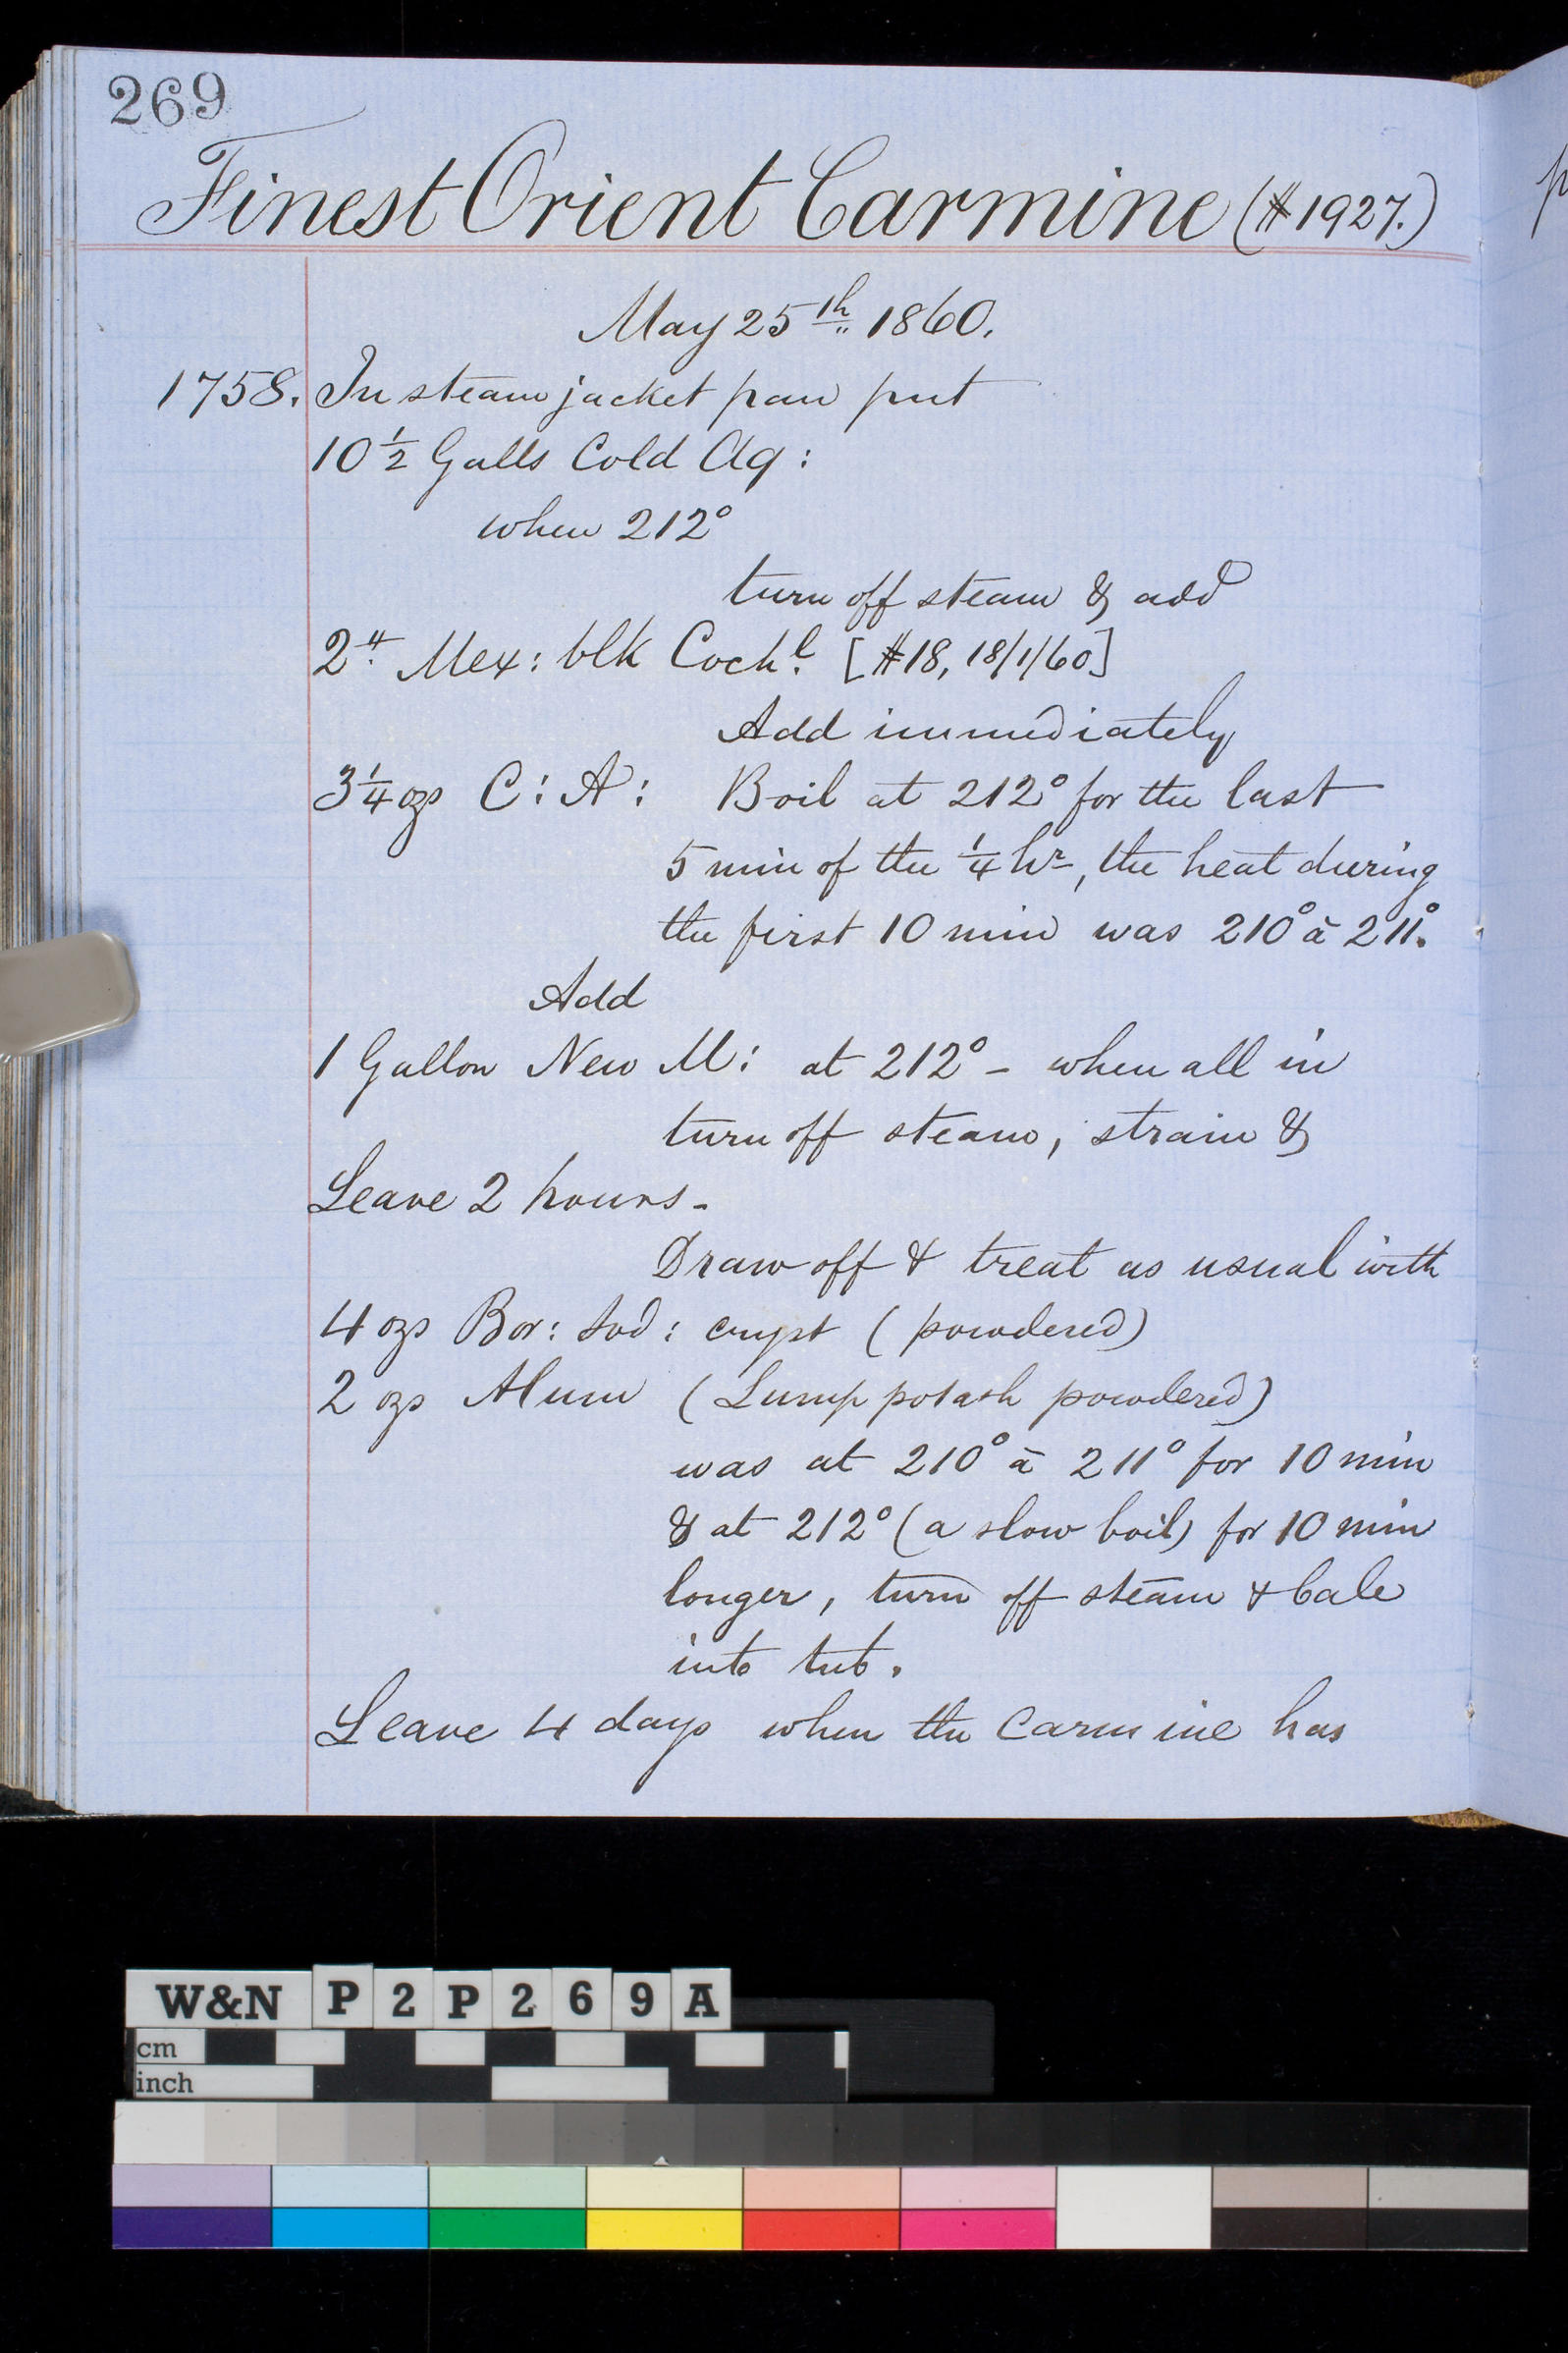 269
Finest Orient Carmine (#1927.)
May 25th 1860.
1758. In steam jacket pan put
10 1/2 Galls Cold Aq:
when 212°
turn off steam & add
2 lb. Mex: blk Cochl. [#18, 18/1/60]
Add immediately
3 1/4 ozs C: A: Boil at 212° for the last
5 min of the 1/4 hr, the heat during
the first 10 min was 210° à 211°.
Add
1 Gallon New M: at 212° - when all in
turn off steam, strain &
Leave 2 hours -
Draw off & treat as usual with
4 ozs Bor: Sod: cryst (powdered)
2 ozs Alum (Lump potash powdered)
was at 210° à 211° for 10 min
& at 212° (a slow boil) for 10 min
longer, turn off steam & bale
into tub.
Leave 4 days when the Carmine has
W&N P2P269A
cm
inch